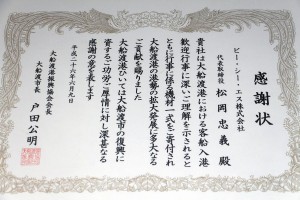 感謝状
ピー・シー・エス株式会社
代表取締役 松岡忠義殿
貴社は大船渡港における客船入港
歓迎行事に深いご理解を示されると
ともに行事に係る機材一式をご寄付され
大船渡港の勢力拡大発展に多大なる
ご貢献を賜りました
大船渡港ひいては大船渡市の復興に
資するご功労ご厚情に対し深甚なる
感謝の意を表します
平成二十六年六月九日
大船渡港振興協会会長
大船渡市長 戸田公明